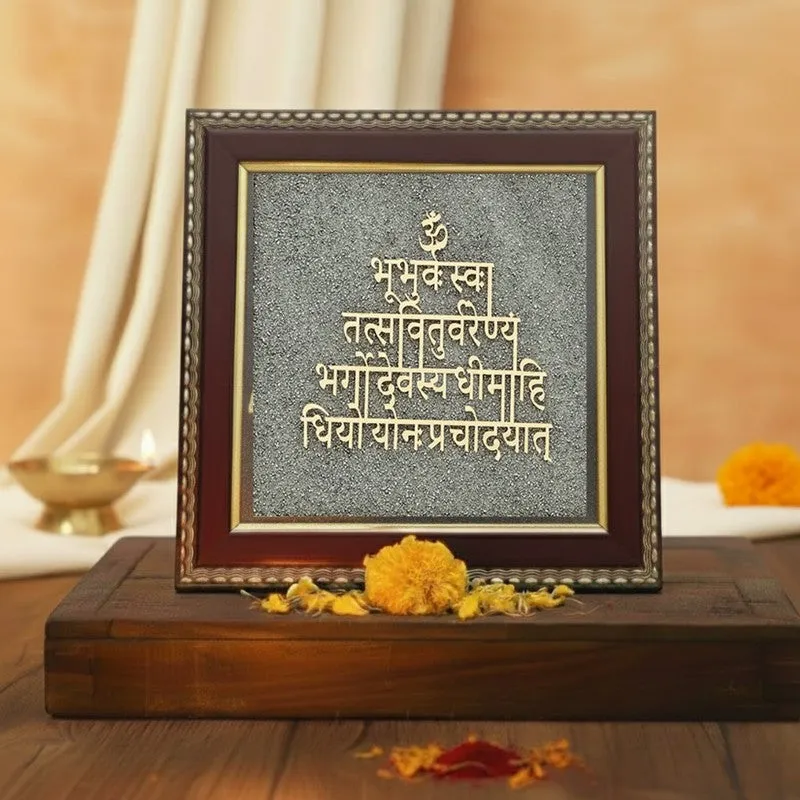 ॐ
भूभुव स्वा
तत्सवितुर्वरेण्यं
भर्गो देवस्य धीमाहि
धियो योन प्रचोदयात्